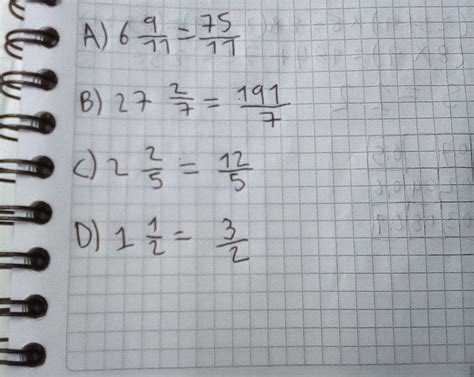 A) 6 9/11 = 75/11
B) 27 2/7 = 191/7
C) 2 2/5 = 12/5
D) 1 1/2 = 3/2